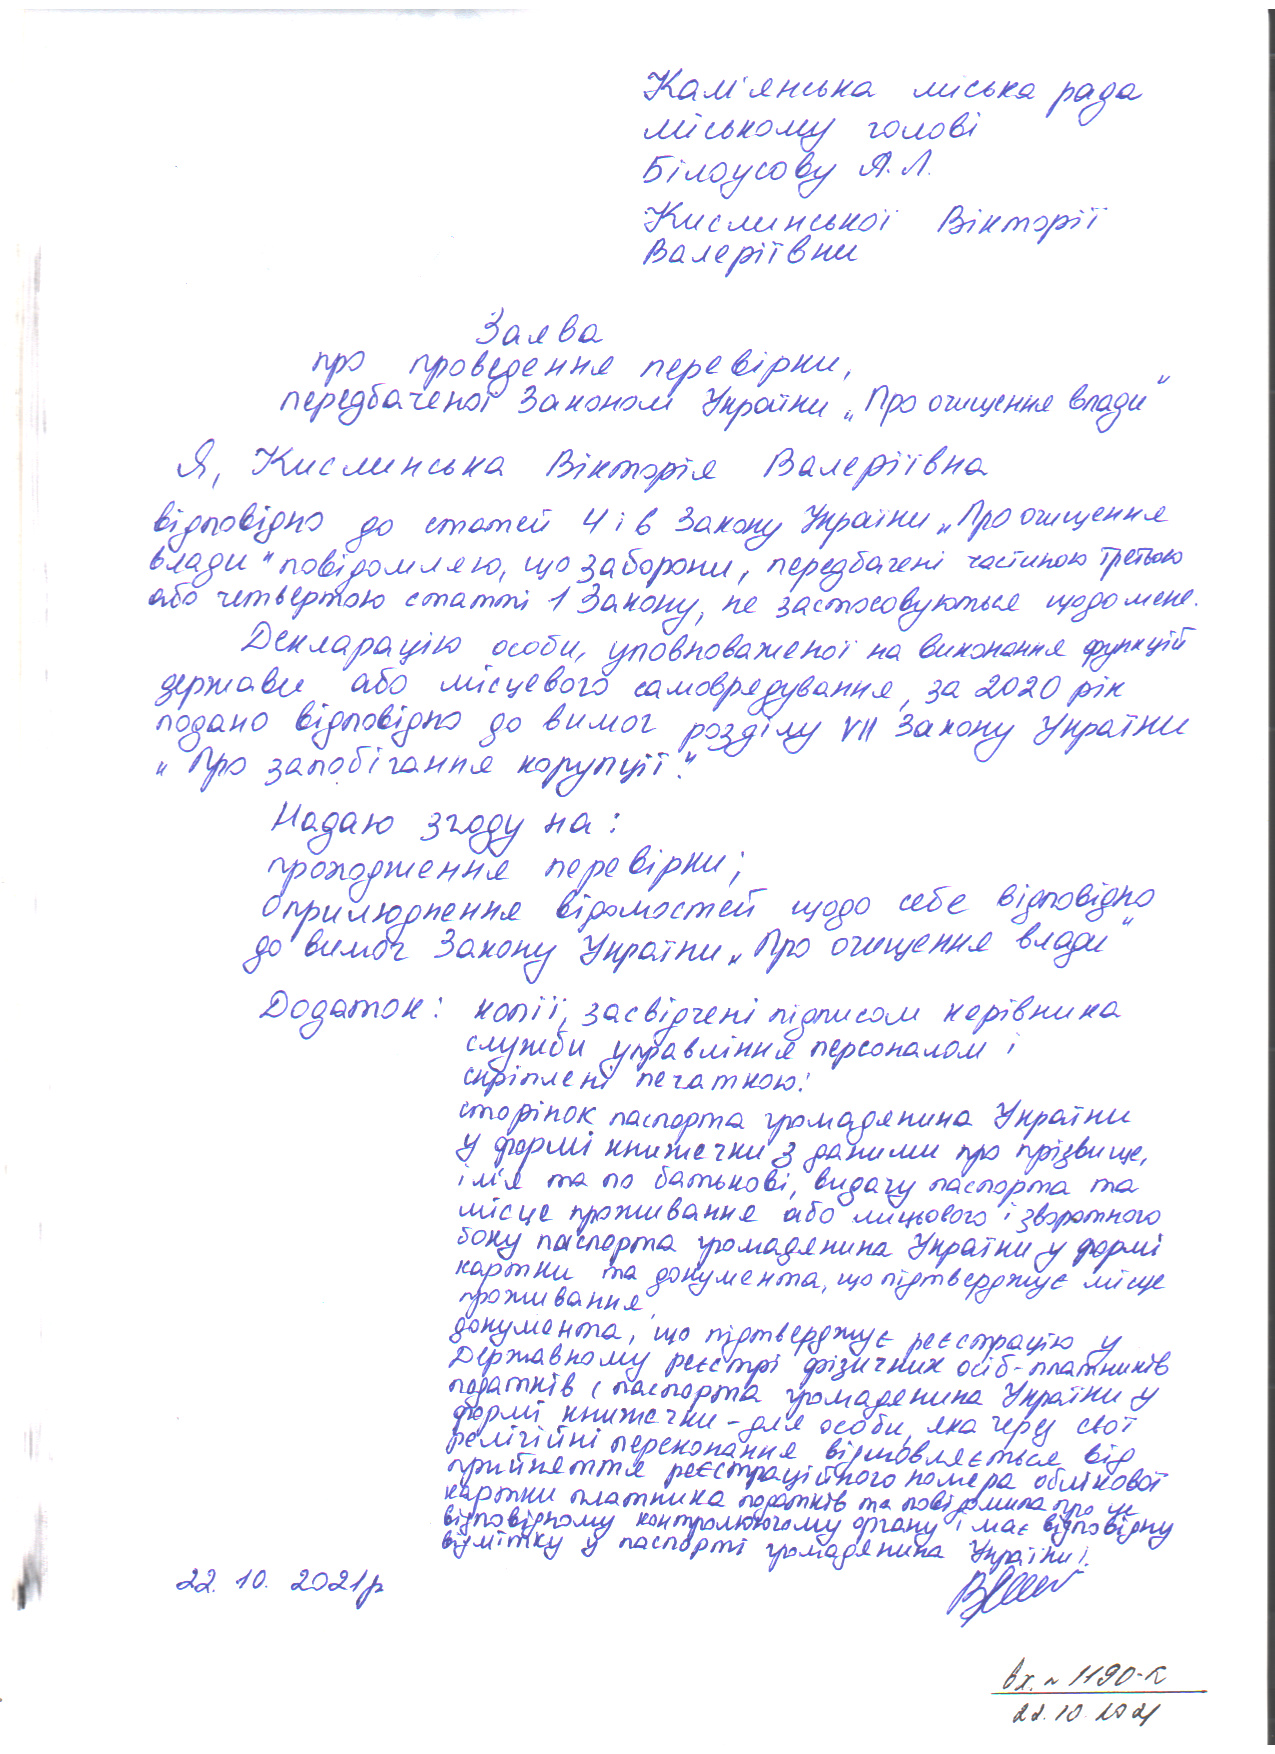 Кам'янська міська рада
міському голові
Білоусову А.Л.
Кислинської Вікторії
Валеріївни
Заява
про проведення перевірки,
передбаченої Законом України „Про очищення влади"
Я, Кислинська Вікторія Валеріївна
відповідно до статей 4 і 6 Закону України „Про очищення
влади" повідомляю, що заборони, передбачені частиною третьою
або четвертою статті 1 Закону, не застосовуються щодо мене.
Декларацію особи, уповноваженої на виконання функцій
держави або місцевого самоврядування, за 2020 рік
подано відповідно до вимог розділу VII Закону України
„Про запобігання корупції".
Надаю згоду на:
проходження перевірки;
оприлюднення відомостей щодо себе відповідно
до вимог Закону України „Про очищення влади"
Додаток: копії, засвідчені підписом керівника
служби управління персоналом і
скріплені печаткою:
сторінок паспорта громадянина України
у формі книжечки з даними про прізвище,
ім'я та по батькові, видачу паспорта та
місце проживання або лицьового і зворотного
боку паспорта громадянина України у формі
картки та документа, що підтверджує місце
проживання,
документа, що підтверджує реєстрацію у
Державному реєстрі фізичних осіб-платників
податків (паспорта громадянина України у
формі книжечки - для особи, яка через свої
релігійні переконання відмовляється від
прийняття реєстраційного номера облікової
картки платника податків та повідомила про це
відповідному контролюючому органу і має відповідну
відмітку у паспорті громадянина України).
22.10.2021р
вх. № 1190-К
22.10.2021